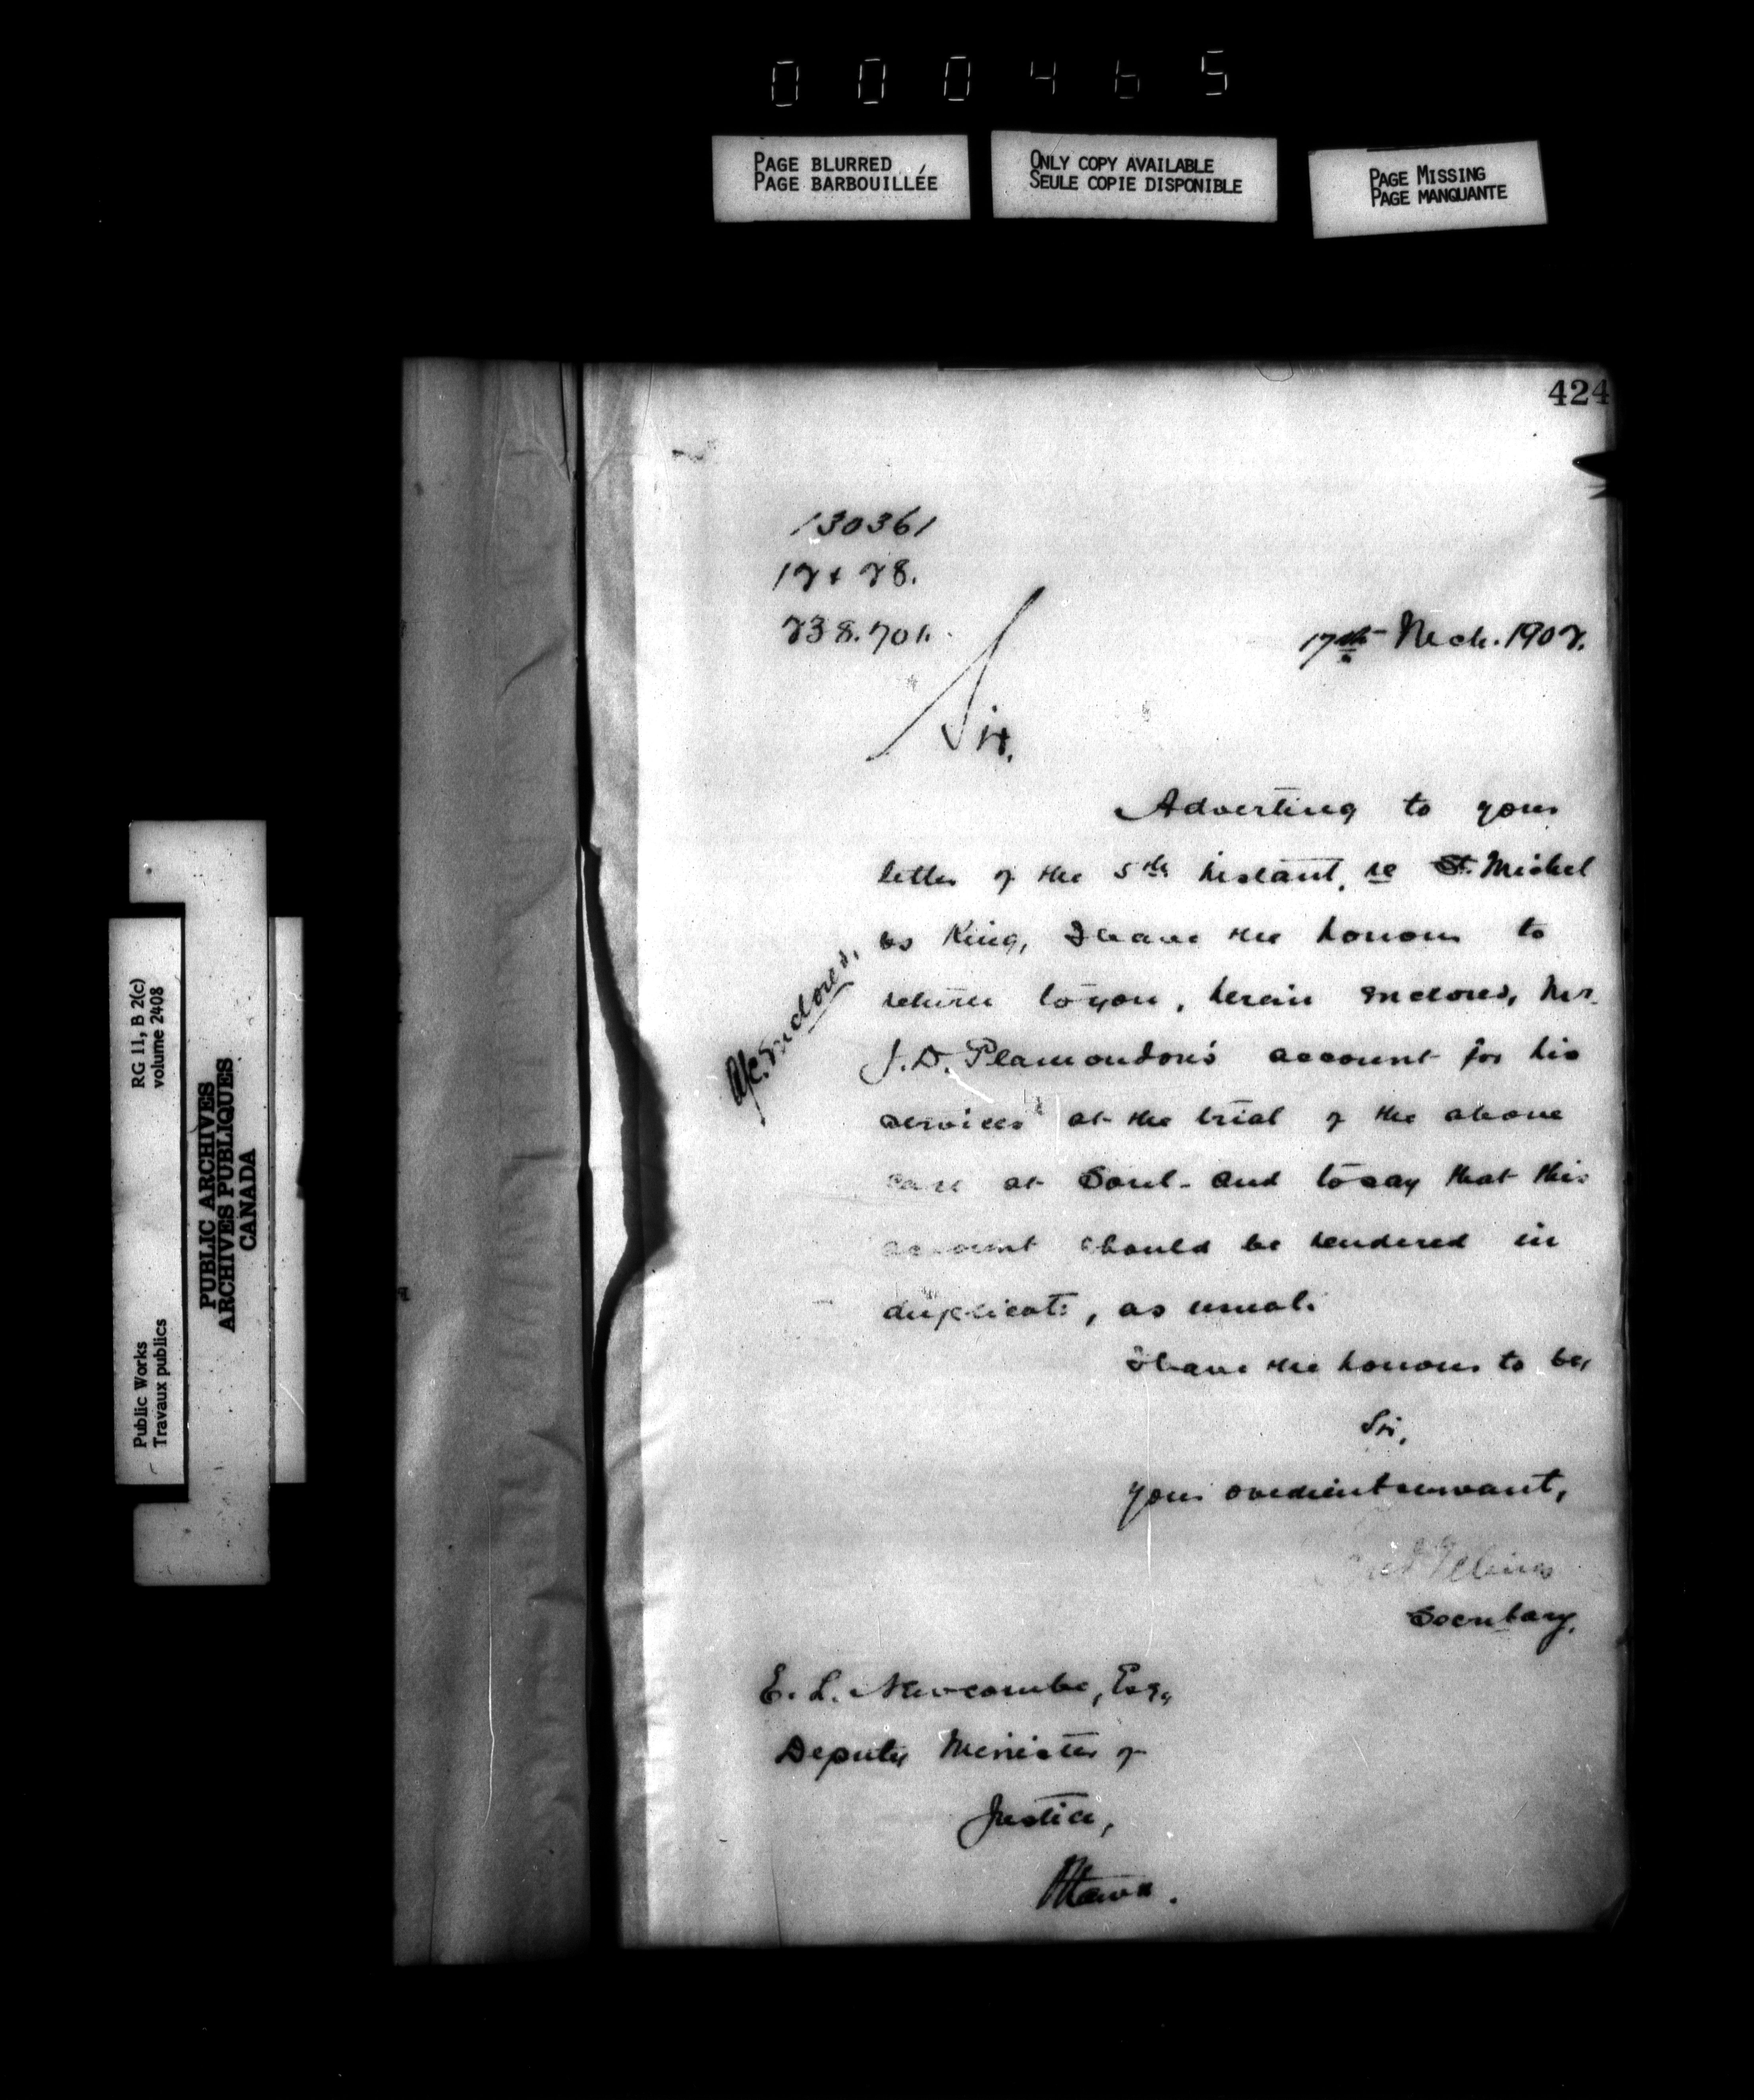 000465
PAGE BLURRED
PAGE BARBOUILLÉE
ONLY COPY AVAILABLE
SEULE COPIE DISPONIBLE
PAGE MISSING
PAGE MANQUANTE
RG 11, B 2(c)
volume 2408
PUBLIC ARCHIVES
ARCHIVES PUBLIQUES
CANADA
Public Works
Travaux publics
424
130361
12 & 28.
238.701.
17th Mch. 1902.
Sir,
Adverting to your
letter of the 5th instant, re St. Michel
vs King, I have the honour to
return to you, herein enclosed, Mr.
J.D. Plamondon's account for his
services at the trial of the above
case at Sorel and to say that this
account should be rendered in
duplicate, as usual.
A/c. Enclosed.
I have the honour to be,
Sir,
your obedient servant,
Secretary.
E. L. Newcombe, Esq.,
Deputy Minister of
Justice,
Ottawa.